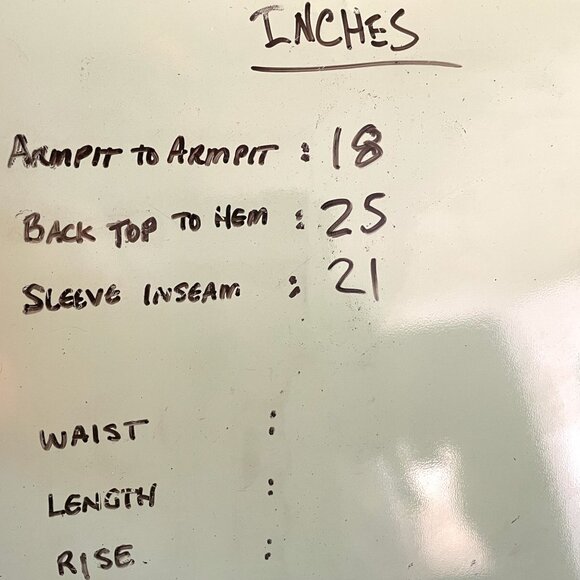 INCHES
ARMPIT TO ARMPIT : 18
BACK TOP TO HEM : 25
SLEEVE INSEAM : 21
WAIST :
LENGTH :
RISE :